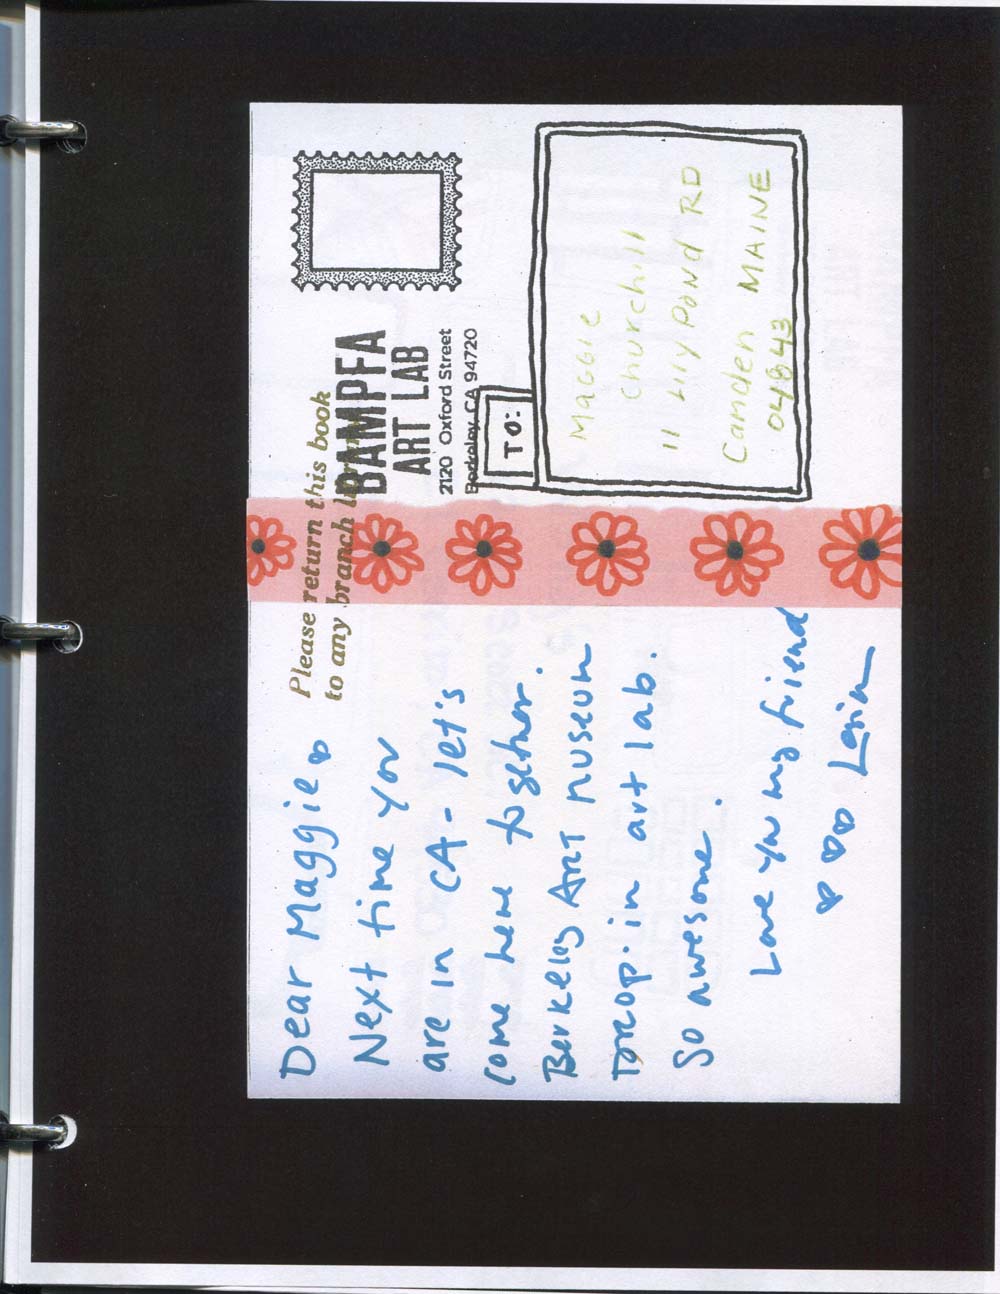 Dear Maggie
Next time you
are in CA - let's
come here together.
Berkeley ART museum
Drop. in art lab.
So awesome.
Love you my friend
Please return this book
to any branch
BAMPFA
ART LAB
2120 Oxford Street
Berkeley, CA 94720
TO:
Maggie
Churchill
11 Lily Pond RD
Camden MAINE
04843